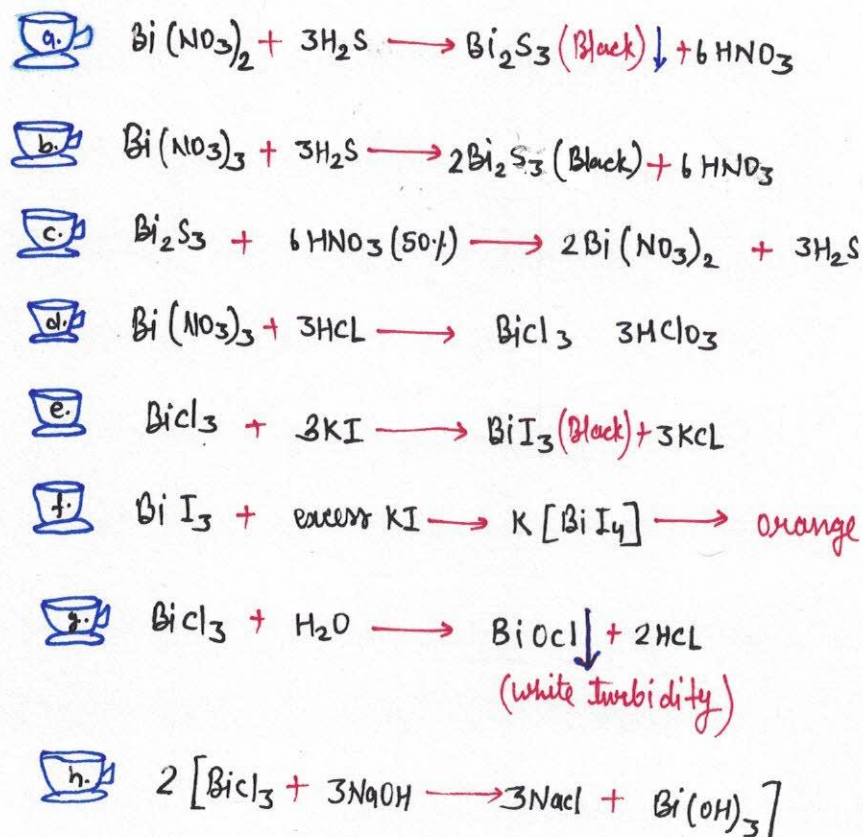 a. Bi(NO3)2 + 3H2S ⟶ Bi2S3 (Black)↓ + 6HNO3
b. Bi(NO3)3 + 3H2S ⟶ 2Bi2S3 (Black) + 6HNO3
c. Bi2S3 + 6HNO3 (50%) ⟶ 2Bi(NO3)2 + 3H2S
d. Bi(NO3)3 + 3HCL ⟶ BiCl3 3HClO3
e. BiCl3 + 3KI ⟶ BiI3 (Black) + 3KCL
f. BiI3 + excess KI ⟶ K[BiI4] ⟶ orange
g. BiCl3 + H2O ⟶ BiOCl↓ + 2HCL
(white turbidity)
h. 2[BiCl3 + 3NaOH ⟶ 3NaCl + Bi(OH)3]